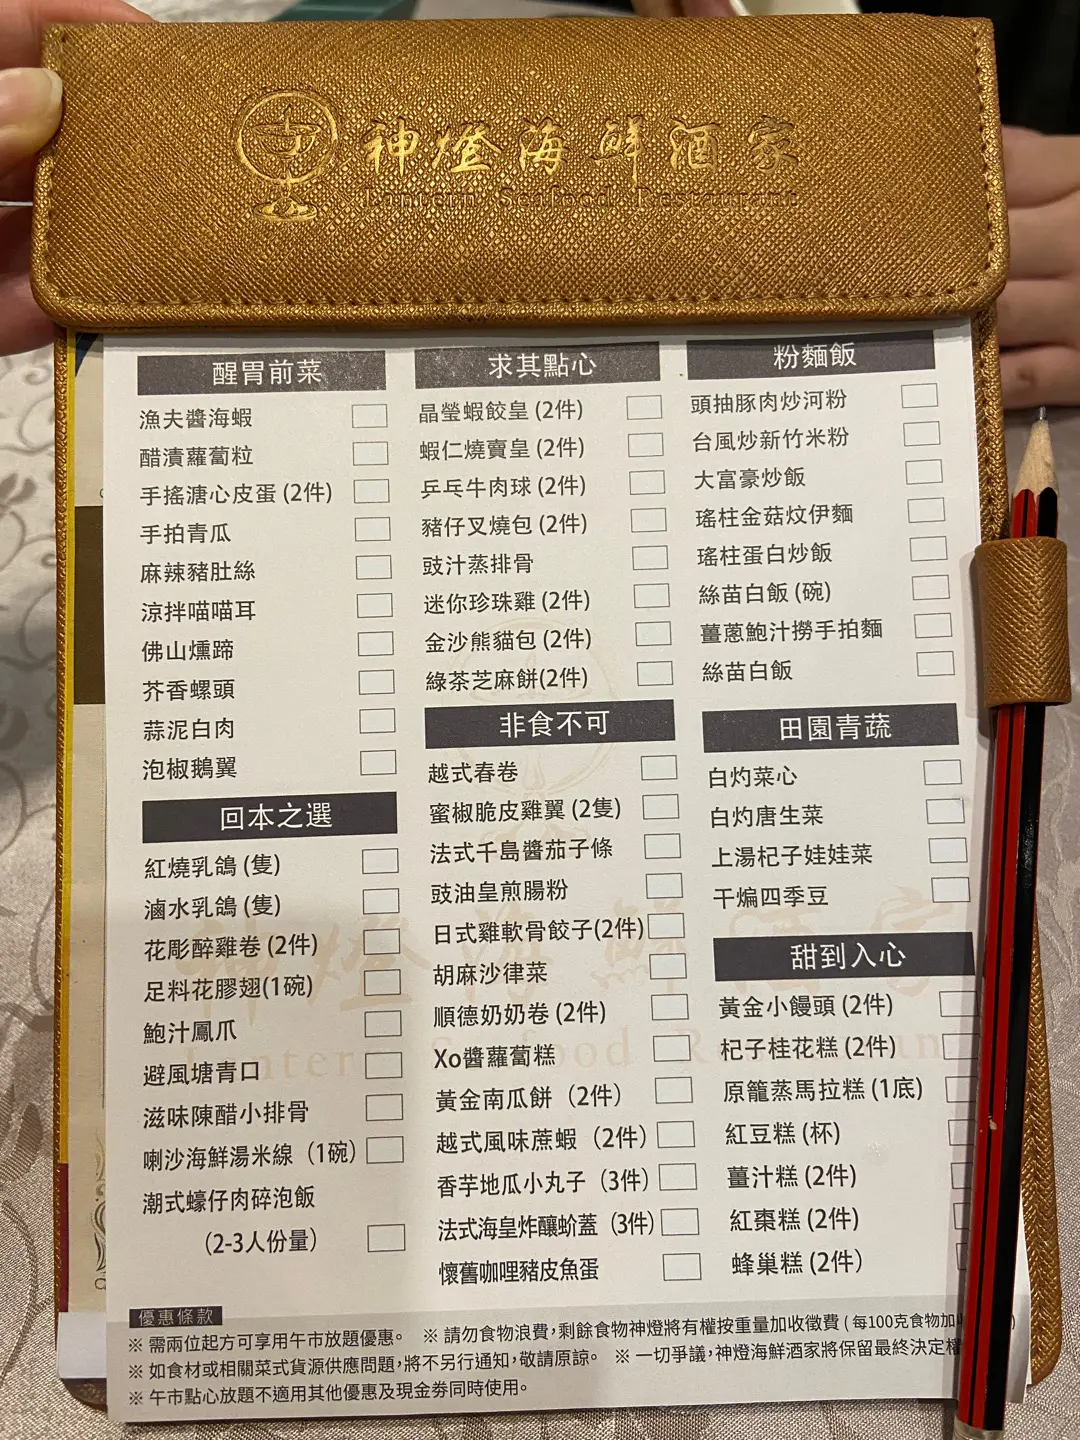 神燈海鮮酒家
Lantern Seafood Restaurant
醒胃前菜
漁夫醬海蝦
醋漬蘿蔔粒
手搖溏心皮蛋 (2件)
手拍青瓜
麻辣豬肚絲
涼拌喵喵耳
佛山燻蹄
芥香螺頭
蒜泥白肉
泡椒鵝翼
回本之選
紅燒乳鴿 (隻)
滷水乳鴿 (隻)
花彫醉雞卷 (2件)
足料花膠翅(1碗)
鮑汁鳳爪
避風塘青口
滋味陳醋小排骨
喇沙海鮮湯米線（1碗）
潮式蠔仔肉碎泡飯
（2-3人份量）
求其點心
晶瑩蝦餃皇 (2件)
蝦仁燒賣皇 (2件)
乒乓牛肉球 (2件)
豬仔叉燒包 (2件)
豉汁蒸排骨
迷你珍珠雞 (2件)
金沙熊貓包 (2件)
綠茶芝麻餅(2件)
非食不可
越式春卷
蜜椒脆皮雞翼 (2隻)
法式千島醬茄子條
豉油皇煎腸粉
日式雞軟骨餃子(2件)
胡麻沙律菜
順德奶奶卷 (2件)
Xo醬蘿蔔糕
黃金南瓜餅（2件）
越式風味蔗蝦（2件）
香芋地瓜小丸子（3件）
法式海皇炸釀蚧蓋（3件）
懷舊咖哩豬皮魚蛋
粉麵飯
頭抽豚肉炒河粉
台風炒新竹米粉
大富豪炒飯
瑤柱金菇炆伊麵
瑤柱蛋白炒飯
絲苗白飯 (碗)
薑蔥鮑汁撈手拍麵
絲苗白飯
田園青蔬
白灼菜心
白灼唐生菜
上湯杞子娃娃菜
干煸四季豆
甜到入心
黃金小饅頭 (2件)
杞子桂花糕 (2件)
原籠蒸馬拉糕 (1底)
紅豆糕 (杯)
薑汁糕 (2件)
紅棗糕 (2件)
蜂巢糕 (2件）
優惠條款
※ 需兩位起方可享用午市放題優惠。 ※ 請勿食物浪費，剩餘食物神燈將有權按重量加收徵費 ( 每100克食物加
※ 如食材或相關菜式貨源供應問題，將不另行通知，敬請原諒。 ※ 一切爭議，神燈海鮮酒家將保留最終決定權
※ 午市點心放題不適用其他優惠及現金券同時使用。